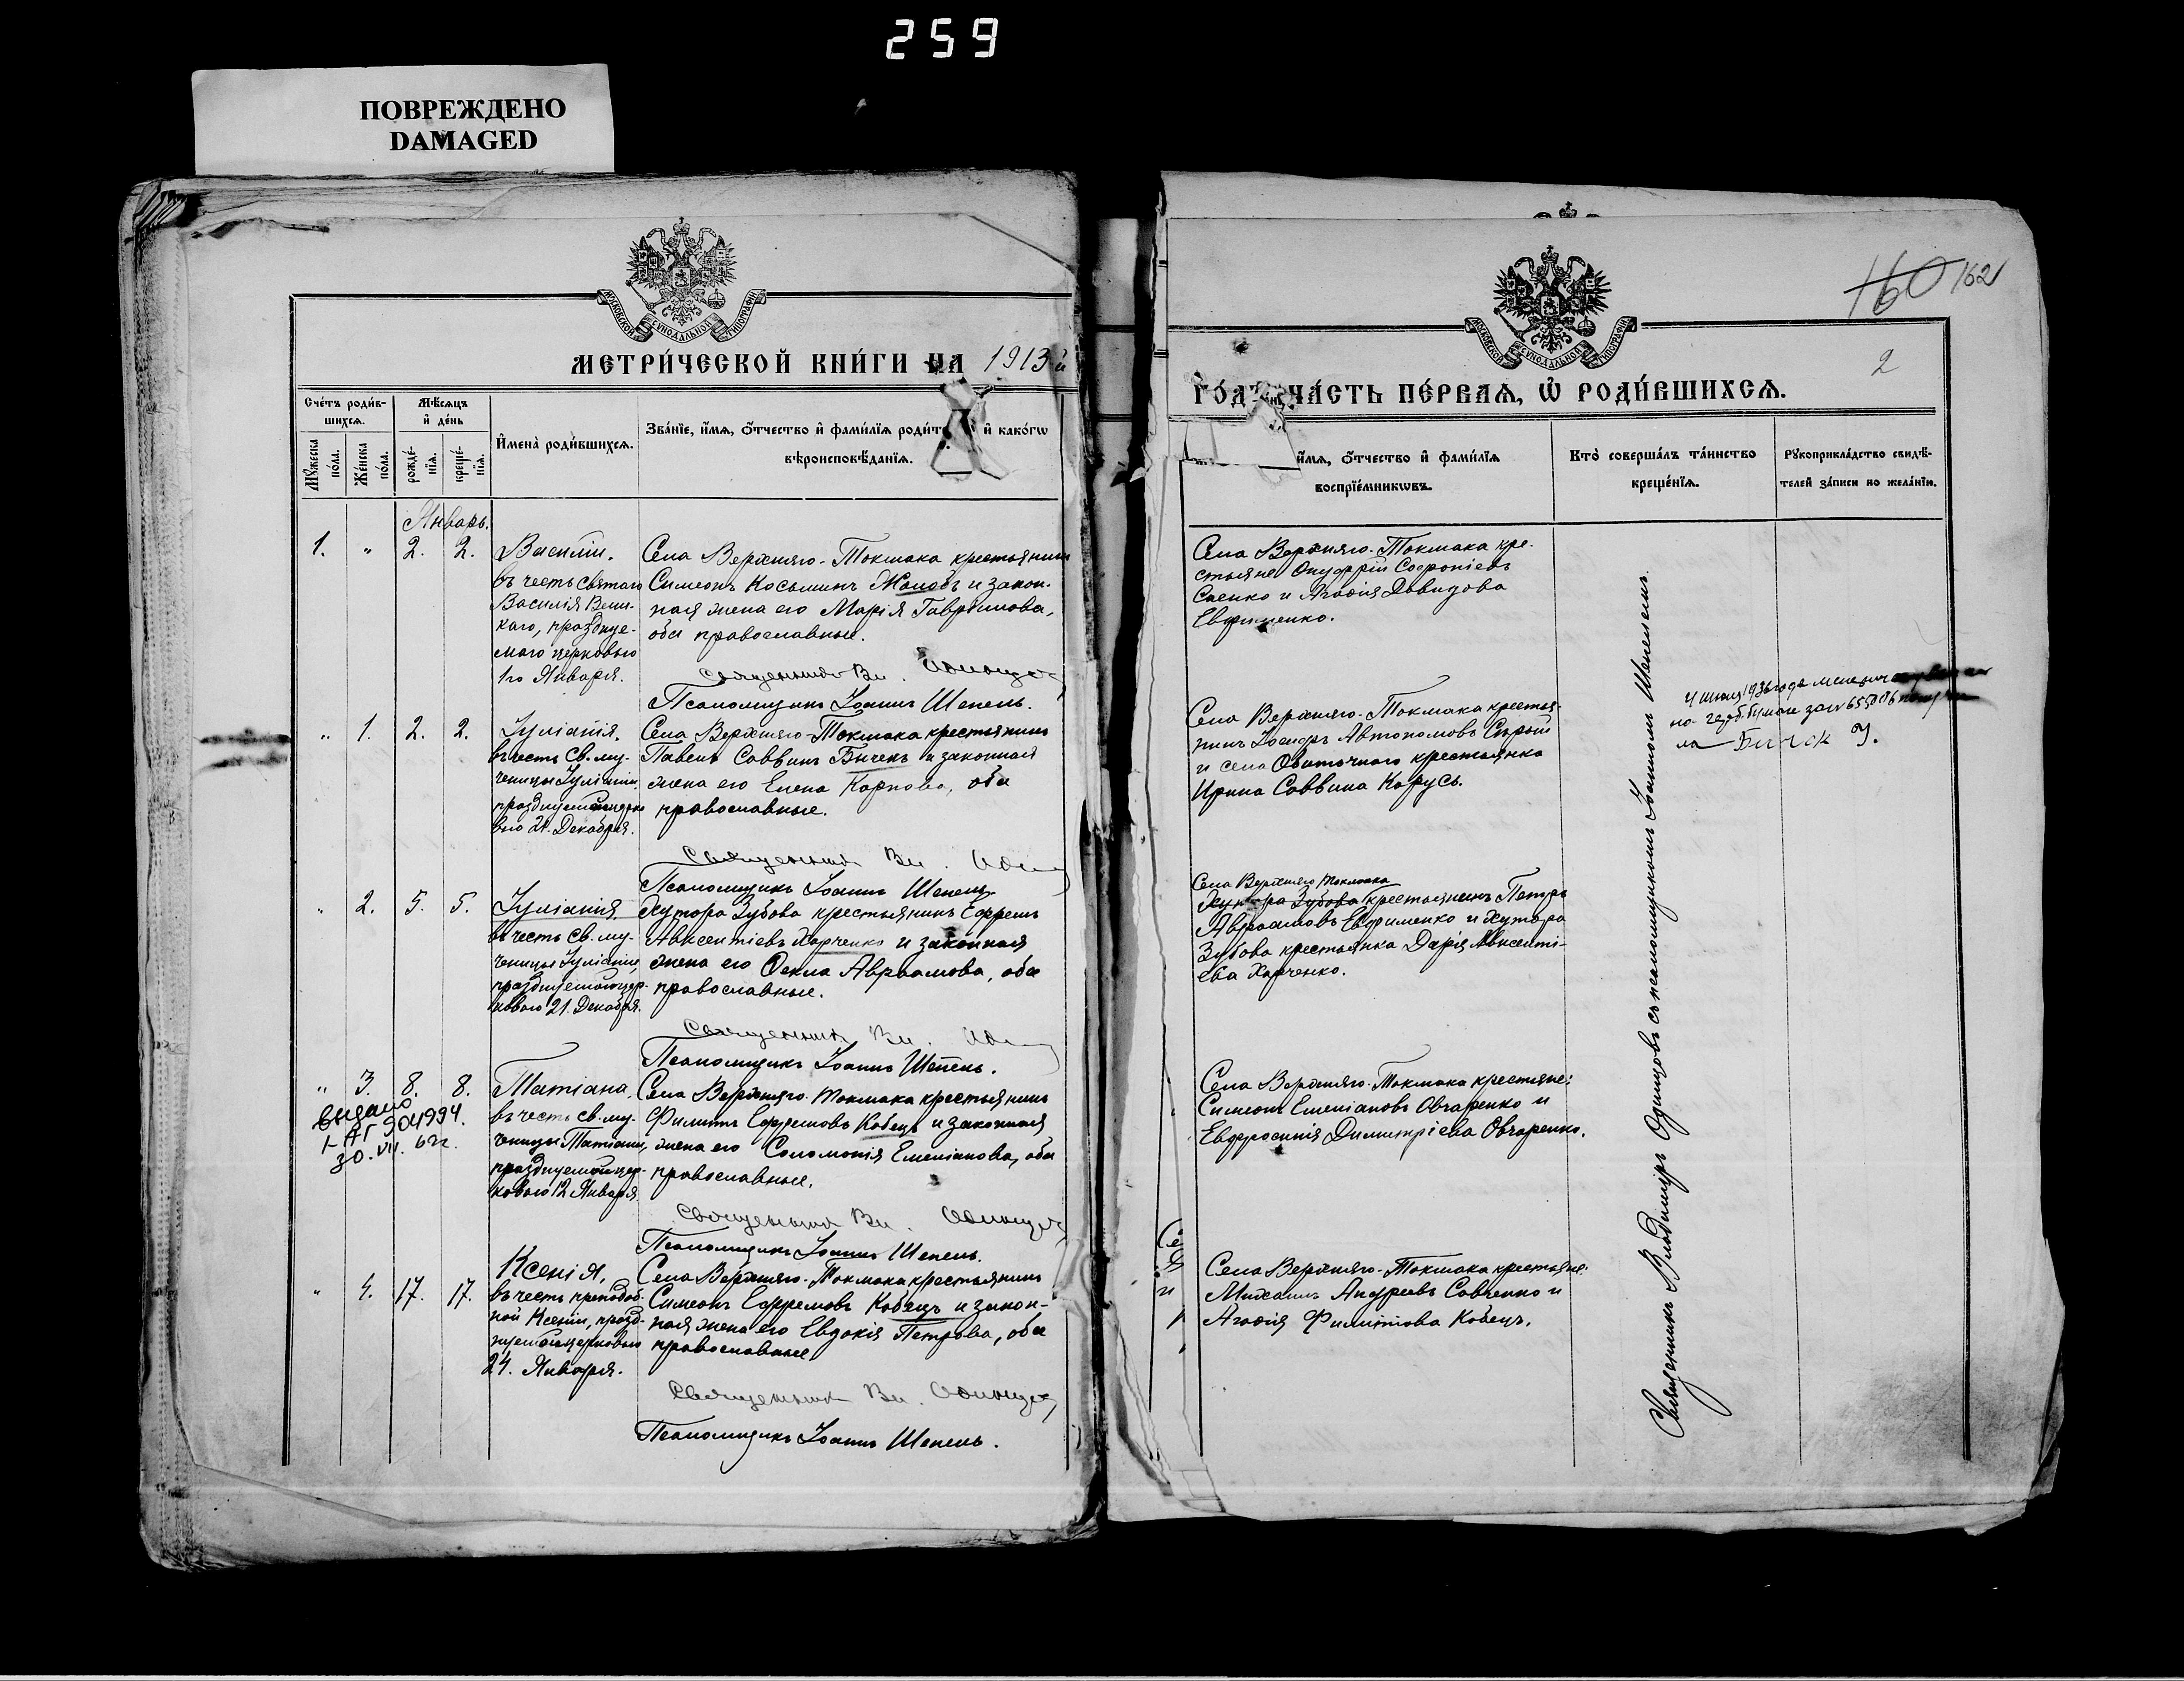 259
ПОВРЕЖДЕНО
DAMAGED
МОСКОВСКОЙ СѴНОДАЛЬНОЙ ТИПОГРАФІИ
МЕТРИ́ЧЕСКОЙ КНИ́ГИ НА 1913й
Сче́тъ роди́в-
шихсѧ.
Мѣ́сѧцъ
и҆ де́нь
Мꙋ́жеска
по́ла.
Же́нска
по́ла.
рожде́-
нїѧ.
креще́-
нїѧ.
И҆мена̀ роди́вшихсѧ.
Зва́нїе, и҆́мѧ, ѻ҆́тчество и҆ фами́лїѧ
и҆ како́гѡ
вѣроисповѣ́данїѧ.
Январь.
1. " 2. 2.
Василій.
въ честь святаго
Василія Вели-
каго, празднуе-
маго церковью
1го Января.
Села Верхняго-Токмака крестьянинъ
Симеонъ Косьминъ и закон-
ная жена его Марія Гавріилова,
оба православные.
Священникъ Вл. Одинцовъ
Псаломщикъ Іоаннъ Шепель.
" 1. 2. 2.
Іуліанія.
въ честь св. му-
ченицы Іуліаніи,
празднуемой церко
вью 21. Декабря.
Села Верхняго-Токмака крестьянинъ
Павелъ Саввинъ Бычекъ и законная
жена его Елена Карпова, оба
православные.
Священникъ Вл.
Псаломщикъ Іоаннъ Шепель.
" 2. 5. 5.
Іуліанія.
въ честь св. му-
ченицы Іуліаніи,
празднуемой цер-
ковью 21. Декабря.
Хутора Зубова крестьянинъ Ефремъ
Авксентіевъ Харченко и законная
жена его Ѳекла Авраамова, оба
православные.
Священникъ Вл.
Псаломщикъ Іоаннъ Шепель.
" 3. 8. 8.
выдано
I-АГ 904994.
30. VII. 62г.
Татіана.
въ честь св. му-
ченицы Татіаны,
празднуемой цер-
ковью 12 Января.
Села Верхняго-Токмака крестьянинъ
Филиппъ Ефремовъ Кобецъ и законная
жена его Соломонія Емеліанова, оба
православные.
Священникъ Вл. Одинцовъ
Псаломщикъ Іоаннъ Шепель.
" 4. 17. 17.
Ксенія,
въ честь преподоб-
ной Ксеніи, празд-
нуемой церковью
24. Января.
Села Верхняго-Токмака крестьянинъ
Симеонъ Ефремовъ Кобецъ и закон-
ная жена его Евдокія Петрова, оба
православные
Священникъ Вл. Одинцовъ
Псаломщикъ Іоаннъ Шепель.
160 162
МОСКОВСКОЙ СѴНОДАЛЬНОЙ ТИПОГРАФІИ
2
ЧА́СТЬ ПЕ́РВАѦ, Ѡ҆ РОДИ́ВШИХСѦ.
и҆́мѧ, ѻ҆́тчество и҆ фами́лїѧ
воспрїе́мникѡвъ.
Кто̀ соверша́лъ та́инство
креще́нїѧ.
Рꙋкоприкла́дство свидѣ́-
телей за́писи по жела́нїю.
Села Верхняго-Токмака кре-
стьяне Онуфрій Софроніевъ
Саенко и Агаѳія Давидова
Евфименко.
Села Верхняго-Токмака крестья-
нинъ Іосифъ Автономовъ Сѣрый
и села Обиточнаго крестьянка
Ирина Саввина Карусь.
Села Верхняго Токмака
Хутора Зубова крестьянинъ Петръ
Авраамовъ Евфименко и Хутора
Зубова крестьянка Дарія Авксенті-
ева Харченко.
Села Верхняго-Токмака крестьяне:
Симеонъ Емеліановъ Овчаренко и
Евфросинія Димитріева Овчаренко.
Села Верхняго-Токмака крестьяне:
Михаилъ Андреевъ Савченко и
Агаѳія Филиппова Кобецъ.
Священникъ Владиміръ Одинцовъ съ псаломщикомъ Іоанномъ Шепелемъ.